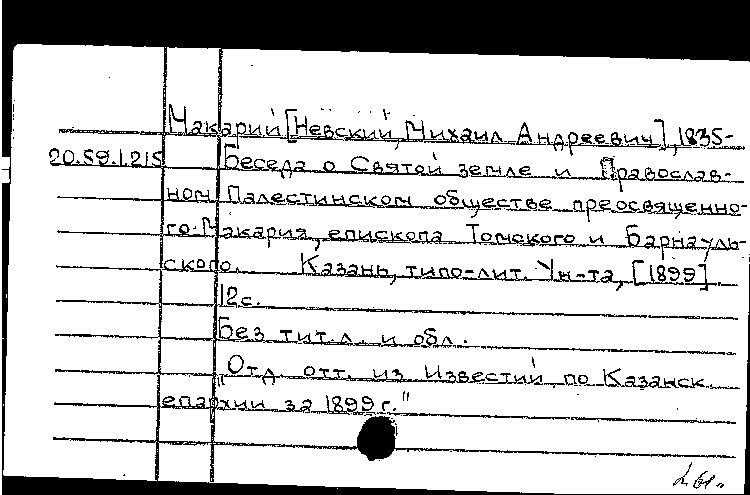 Макарий [Невский, Михаил Андреевич], 1835-
20.59.1.215 Беседа о Святой земле и Православ-
ном Палестинском обществе преосвященно-
го Макария, епископа Томского и Барнауль-
ского. Казань, типо-лит. Ун-та, [1899].
12с.
Без тит.л. и обл.
„Отд. отт. из Известий по Казанск.
епархии за 1899 г."